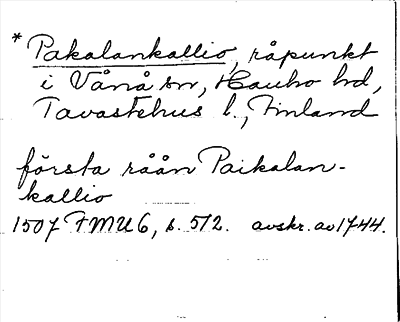 * Pakalankallio, råpunkt
i Vånå sn, Hauho hd,
Tavastehus l., Finland
första råån Paikalan-
kallio
1507 FMU 6, s. 512. avskr. av 1744.